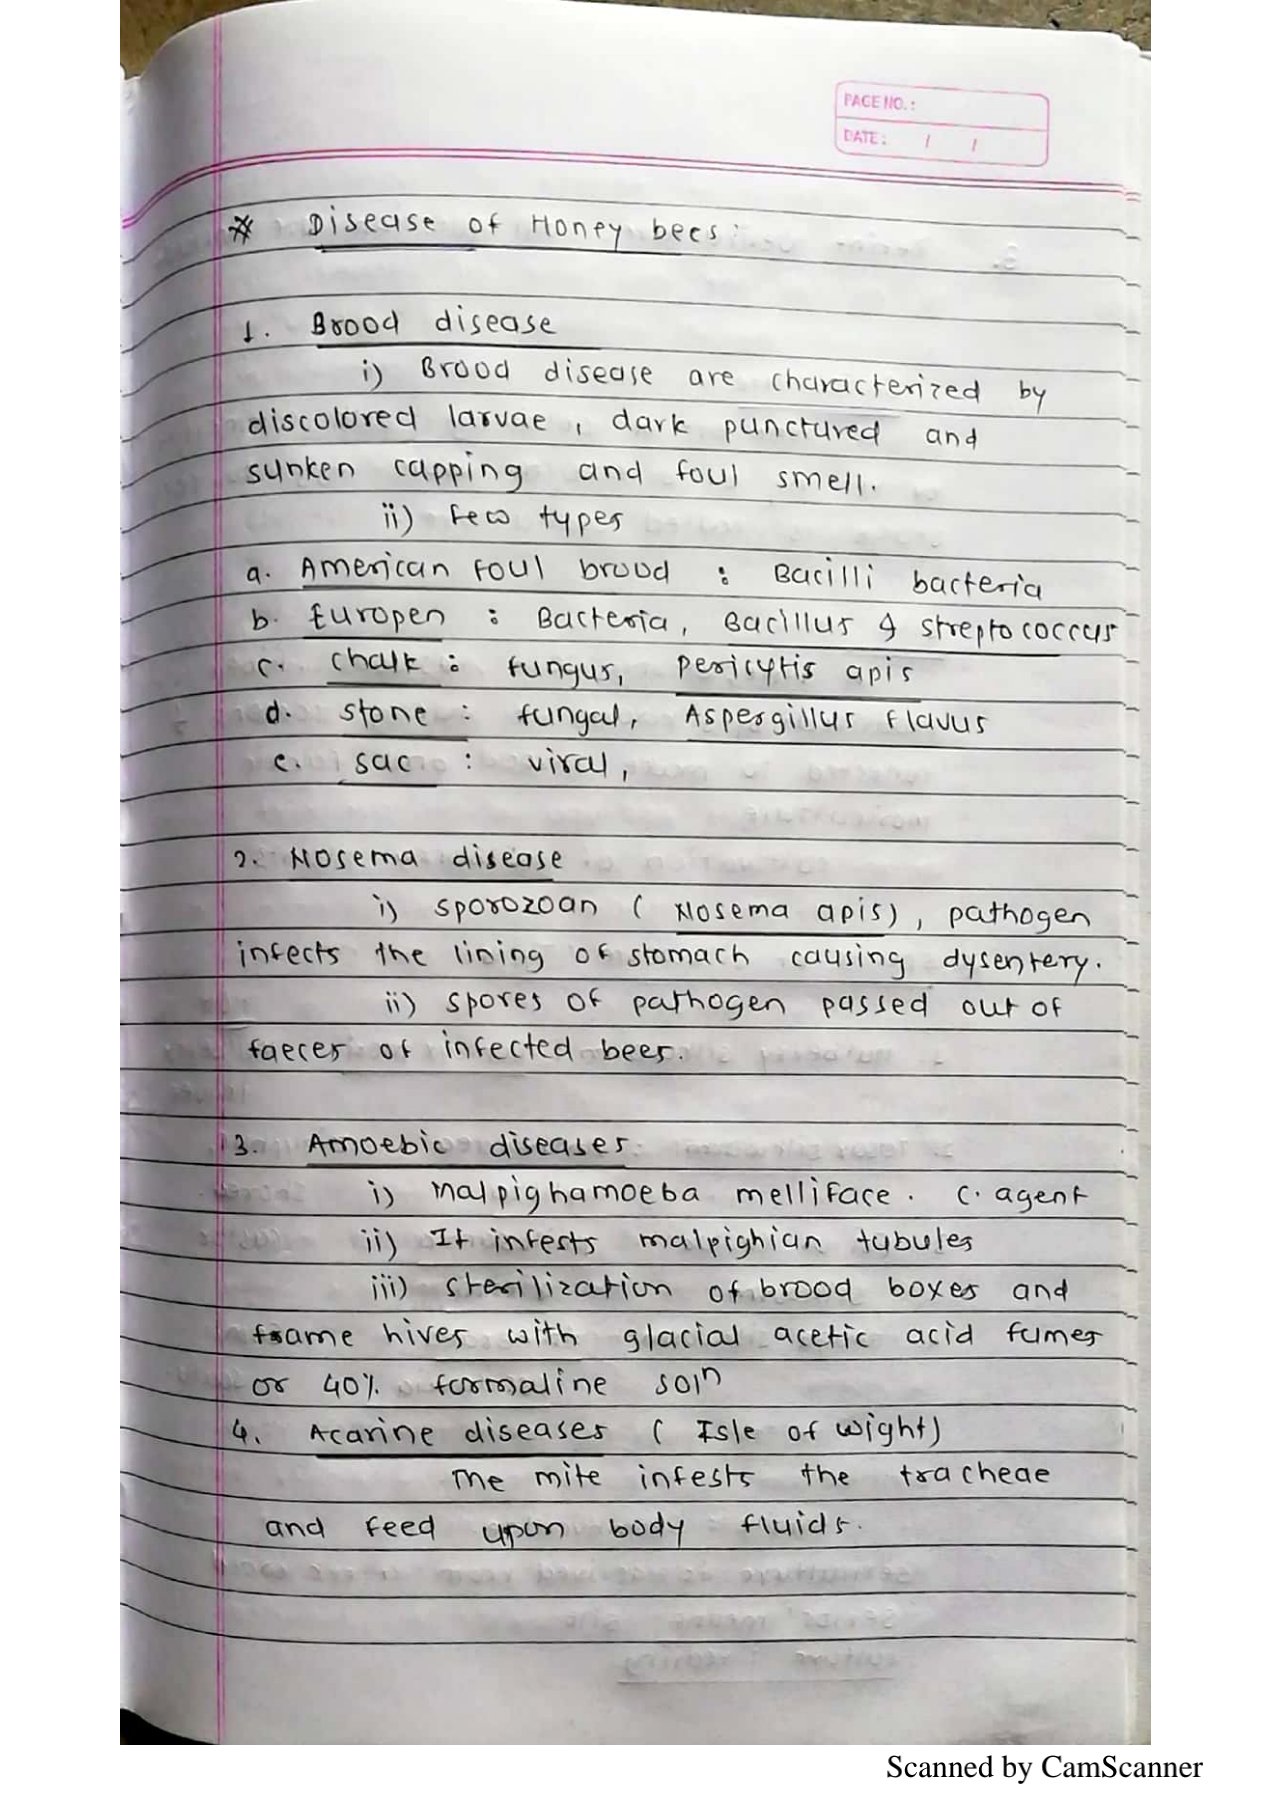 PAGE NO.:
DATE: / /
* Disease of Honey bees:
1. Brood disease
i) Brood disease are characterized by
discolored larvae, dark punctured and
sunken capping and foul smell.
ii) Few types
a. American foul brood : Bacilli bacteria
b. Europen : Bacteria, Bacillus & streptococcus
c. chalk : fungus, pericytis apis
d. stone : fungal, Aspergillus flavus
e. sac : viral,
2. Nosema disease
i) sporozoan ( Nosema apis), pathogen
infects the lining of stomach causing dysentery.
ii) spores of pathogen passed out of
faeces of infected bees.
3. Amoebic diseases
i) Malpighamoeba melliface. C. agent
ii) It infests malpighian tubules
iii) sterilization of brood boxes and
frame hives with glacial acetic acid fumes
or 40% formaline soln
4. Acarine diseases ( Isle of wight)
The mite infests the tracheae
and feed upon body fluids.
Scanned by CamScanner